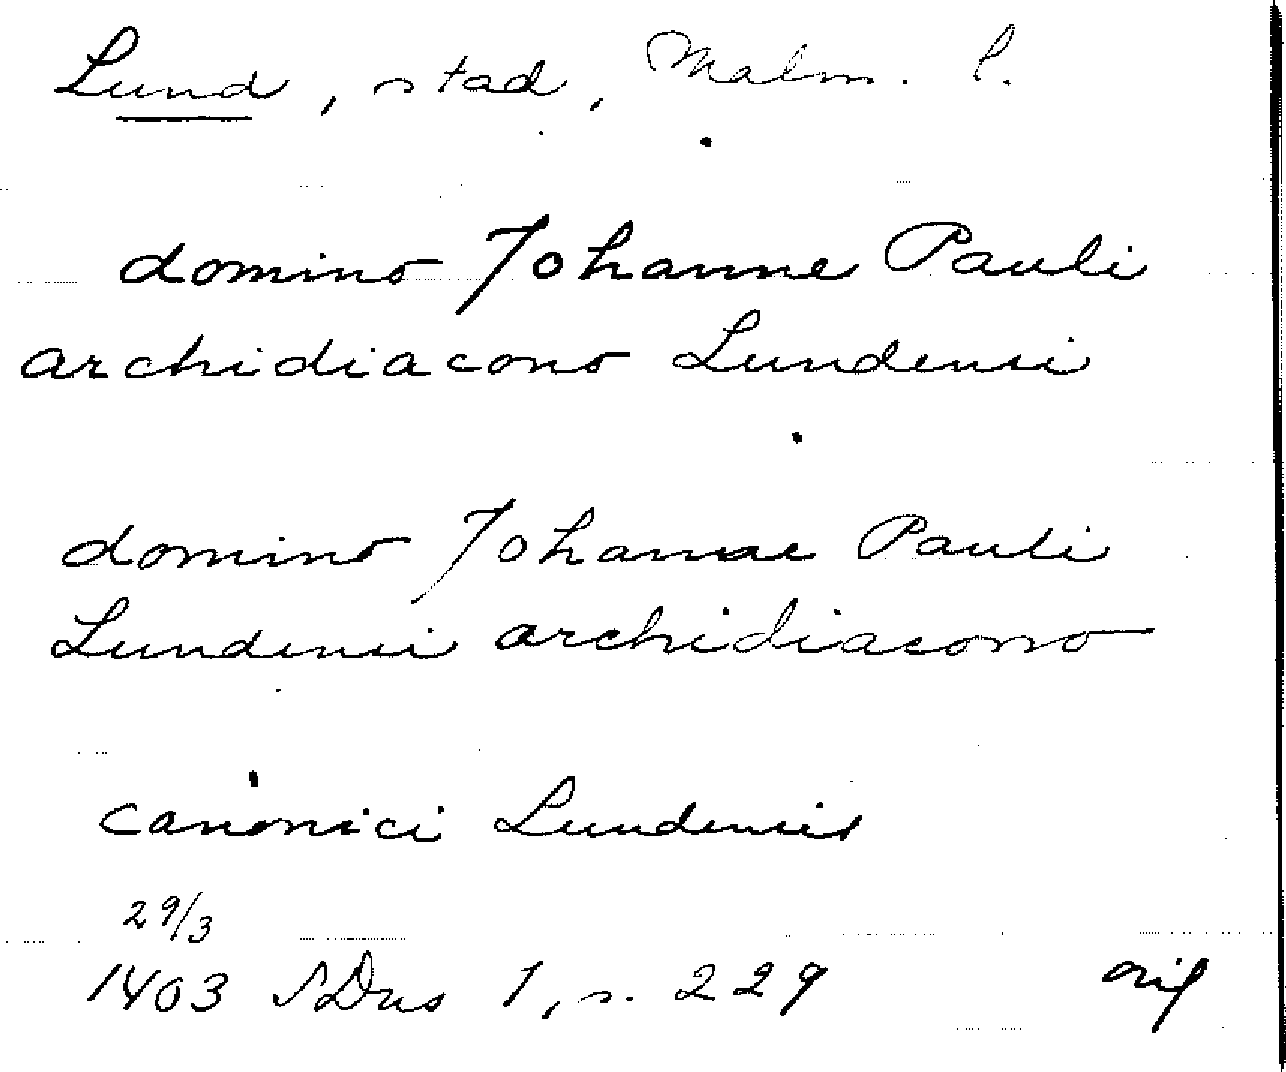 Lund, stad, Malm. l.
domino Johanne Pauli
archidiacono Lundensi
domino Johanne Pauli
Lundensi archidiacono
canonici Lundensis
29/3
1403 SDns 1, s. 229 orig